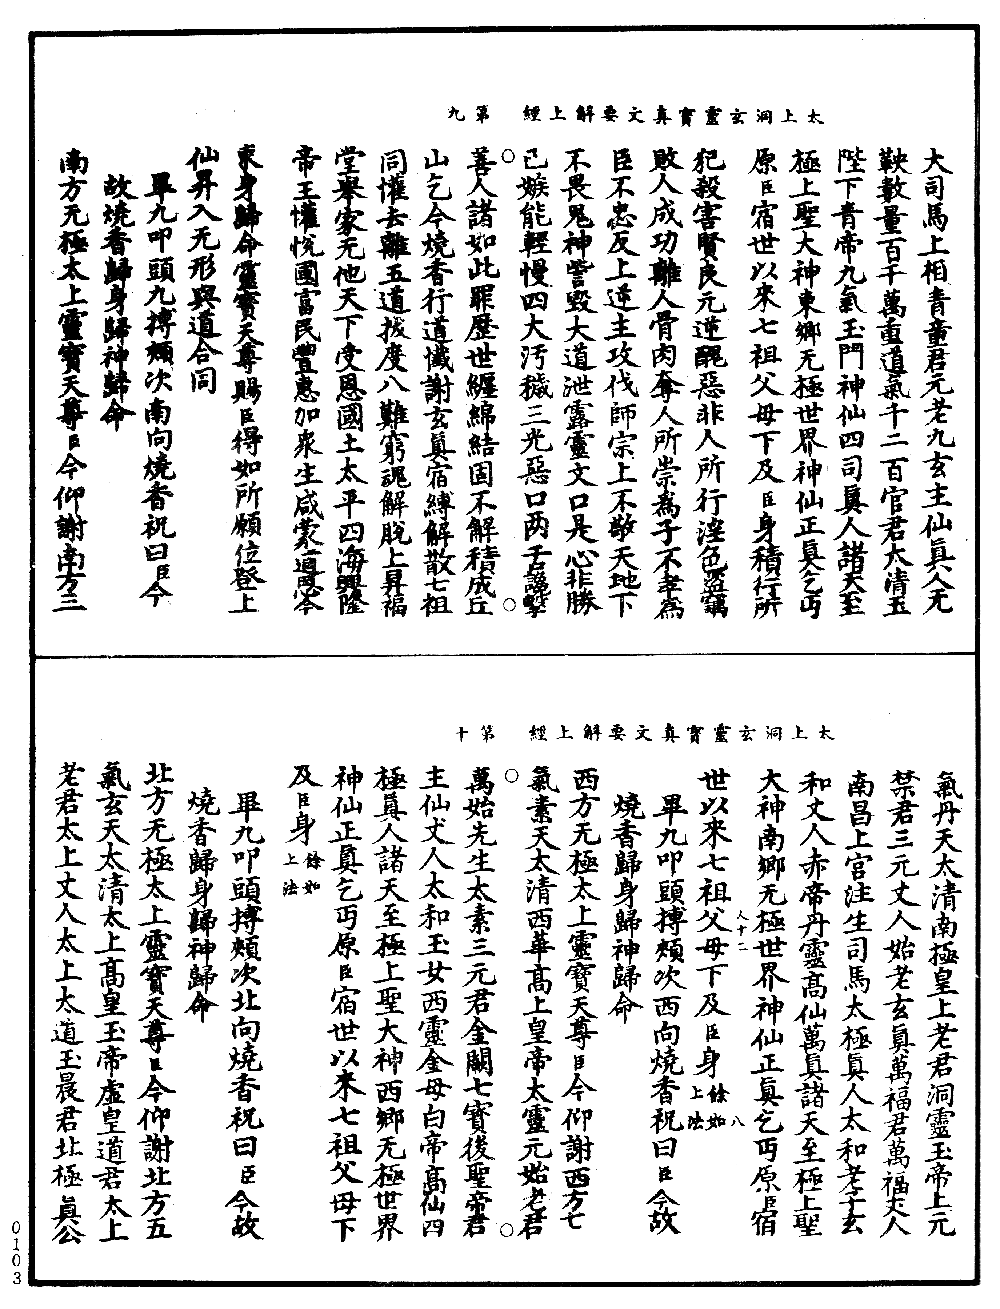 太上洞玄靈寶眞文要解上經　第九
大司馬上相青童君元老九玄主仙眞人无
鞅數量百千萬重道氣千二百官君太清玉
陛下青帝九氣玉門神仙四司眞人諸天至
極上聖大神東鄉无極世界神仙正眞乞丐
原臣宿世以來七祖父母下及臣身積行所
犯殺害賢良元逆醜惡非人所行淫色盜竊
敗人成功離人骨肉奪人所崇爲子不孝爲
臣不忠反上逆主攻伐師宗上不敬天地下
不畏鬼神訾毀大道泄露靈文口是心非勝
己嫉能輕慢四大汚穢三光惡口兩舌讒擊
善人諸如此罪歷世纏綿結固不解積成丘
山乞今燒香行道懺謝玄眞宿縛解散七祖
同懽去離五道拔度八難窮魂解脫上昇福
堂舉家无他天下受恩國土太平四海興隆
帝王懽悅國富民豐惠加衆生咸蒙
東身歸命靈寶天尊賜臣得如所願位登上
仙昇入无形與道合同
畢九叩頭九搏頰次南向燒香祝曰臣今
故燒香歸身歸神歸命
南方无極太上靈寶天尊臣今仰謝南方三
太上洞玄靈寶眞文要解上經　第十
氣丹天太清南極皇上老君洞靈玉帝上元
禁君三元丈人始老玄眞萬福君萬福丈人
南昌上宮注生司馬太極眞人太和老子玄
和丈人赤帝丹靈高仙萬眞諸天至極上聖
大神南鄉无極世界神仙正眞乞丐原臣宿
世以來七祖父母下及臣身餘如上法
畢九叩頭搏頰次西向燒香祝曰臣今故
燒香歸身歸神歸命
西方无極太上靈寶天尊臣今仰謝西方七
氣素天太清西華高上皇帝太靈元始老君
萬始先生太素三元君金闕七寶後聖帝君
主仙丈人太和玉女西靈金母白帝高仙四
極眞人諸天至極上聖大神西鄉无極世界
神仙正眞乞丐原臣宿世以來七祖父母下
及臣身餘如上法
畢九叩頭搏頰次北向燒香祝曰臣今故
燒香歸身歸神歸命
北方无極太上靈寶天尊臣今仰謝北方五
氣玄天太清太上高皇玉帝虛皇道君太上
老君太上丈人太上太道玉晨君北極眞公
0103